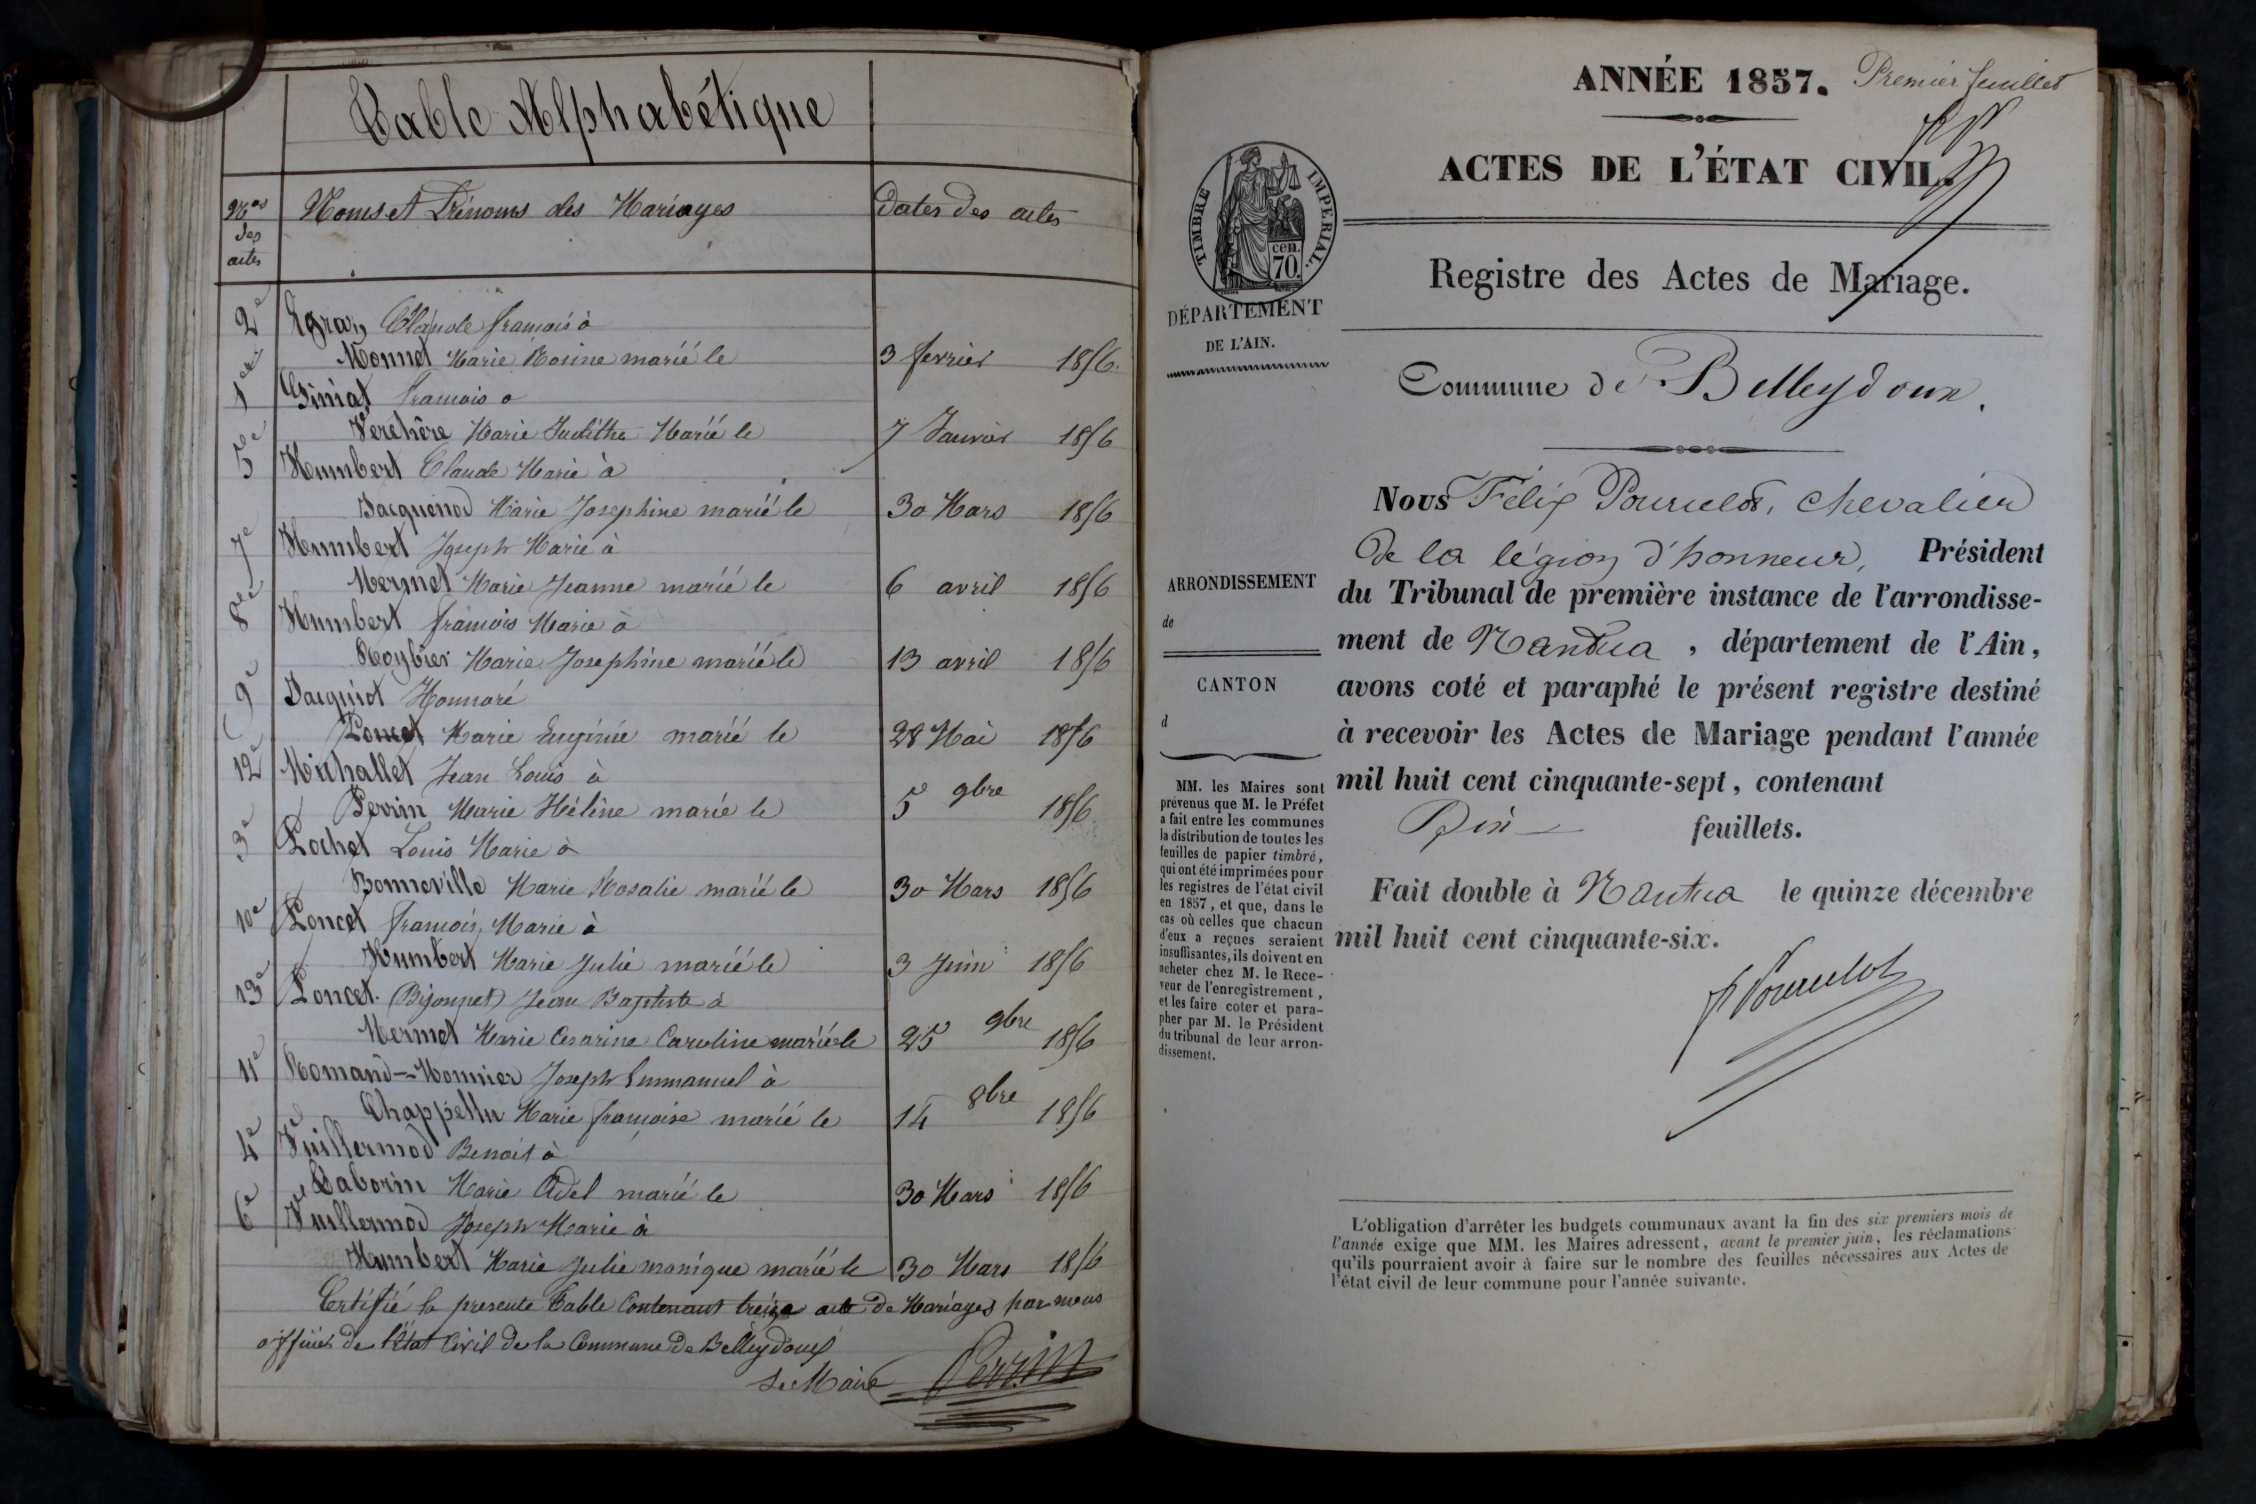 Table Alphabétique
Nos des actes
Noms et Prénoms des Mariages
Dates des actes
2e
Egraz Claude francois à
Monnet Marie Rosine marié le 3 fevrier 1856.
1er
Giniat francois a
Verchère Marie Judithe Marié le 7 Janvier 1856
5e
Humbert Claude Marie à
Jacquenod Marie Josephine marié le 30 Mars 1856
7e
Humbert Joseph Marie à
Mermet Marie Jeanne marié le 6 avril 1856
8e
Humbert francois Marie à
Roybier Marie Josephine marié le 13 avril 1856
9e
Jacquiot Honnoré
Poncet Marie Eugénie marié le 28 Mai 1856
12e
Michallet Jean Louis à
Perrin Marie Hélène marié le 5 9bre 1856
3e
Pochet Louis Marie à
Bonneville Marie Rosalie marié le 30 Mars 1856
10e
Poncet francois Marie à
Humbert Marie Julie marié le 3 Juin 1856
13e
Poncet (Bijonnet) Jean Baptiste à
Mermet Marie Cesarine Caroline marié le 25 9bre 1856
11e
Romand-Monnier Joseph Emmanuel à
Chappellu Marie francoise marié le 14 8bre 1856
4e
Vuillermod Benoit à
Taborin Marie Adel marié le 30 Mars 1856
6e
Vuillermod Joseph Marie à
Humbert Marie Julie monique marié le 30 Mars 1856
Certifié la presente Table Contenant treize acte de Mariages par nous
officier de l'Etat Civil de la Commune de Belleydoux
Le Maire Perrin
ANNÉE 1857. Premier feuillet
ACTES DE L'ÉTAT CIVIL.
Registre des Actes de Mariage.
TIMBRE IMPERIAL.
cen.
70.
DÉPARTEMENT
DE L'AIN.
Commune de Belleydoux.
Nous Félix Pourcelot, chevalier
de la légion d'honneur, Président
du Tribunal de première instance de l'arrondisse-
ment de Nantua, département de l'Ain,
avons coté et paraphé le présent registre destiné
à recevoir les Actes de Mariage pendant l'année
mil huit cent cinquante-sept, contenant
Dix feuillets.
Fait double à Nantua le quinze décembre
mil huit cent cinquante-six.
f Pourcelot
ARRONDISSEMENT
de
CANTON
d
MM. les Maires sont
prévenus que M. le Préfet
a fait entre les communes
la distribution de toutes les
feuilles de papier timbré,
qui ont été imprimées pour
les registres de l'état civil
en 1857, et que, dans le
cas où celles que chacun
d'eux a reçues seraient
insuffisantes, ils doivent en
acheter chez M. le Rece-
veur de l'enregistrement,
et les faire coter et para-
pher par M. le Président
du tribunal de leur arron-
dissement.
L'obligation d'arrêter les budgets communaux avant la fin des six premiers mois de
l'année exige que MM. les Maires adressent, avant le premier juin, les réclamations
qu'ils pourraient avoir à faire sur le nombre des feuilles nécessaires aux Actes de
l'état civil de leur commune pour l'année suivante.